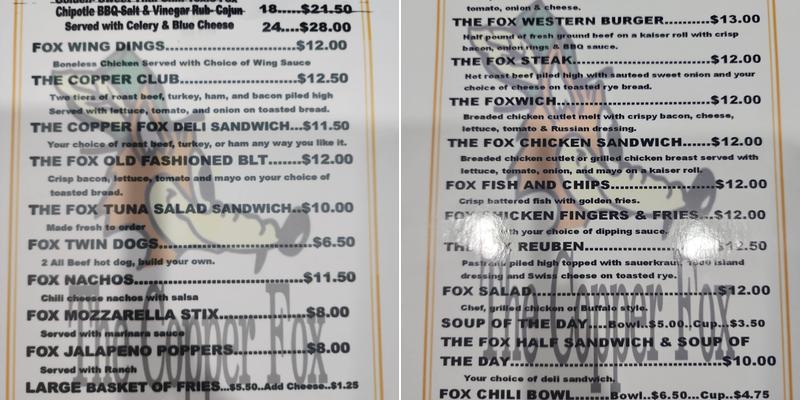 Chipotle BBQ-Salt & Vinegar Rub- Cajun
18.....$21.50
Served with Celery & Blue Cheese
24....$28.00
FOX WING DINGS..................$12.00
Boneless Chicken Served with Choice of Wing Sauce
THE COPPER CLUB..................$12.50
Two tiers of roast beef, turkey, ham, and bacon piled high
Served with lettuce, tomato, and onion on toasted bread.
THE COPPER FOX DELI SANDWICH...$11.50
Your choice of roast beef, turkey, or ham any way you like it.
THE FOX OLD FASHIONED BLT.......$12.00
Crisp bacon, lettuce, tomato and mayo on your choice of
toasted bread.
THE FOX TUNA SALAD SANDWICH..$10.00
Made fresh to order
FOX TWIN DOGS.......................$6.50
2 All Beef hot dog, build your own.
FOX NACHOS.......................$11.50
Chili cheese nachos with salsa
FOX MOZZARELLA STIX.............$8.00
Served with marinara sauce
FOX JALAPENO POPPERS...........$8.00
Served with Ranch
LARGE BASKET OF FRIES...$5.50..Add Cheese..$1.25
The Copper Fox
tomato, onion & cheese.
THE FOX WESTERN BURGER.......$13.00
Half pound of fresh ground beef on a kaiser roll with crisp
bacon, onion rings & BBQ sauce.
THE FOX STEAK.....................$12.00
Hot roast beef piled high with sauteed sweet onion and your
choice of cheese on toasted rye bread.
THE FOXWICH.......................$12.00
Breaded chicken cutlet melt with crispy bacon, cheese,
lettuce, tomato & Russian dressing.
THE FOX CHICKEN SANDWICH.....$12.00
Breaded chicken cutlet or grilled chicken breast served with
lettuce, tomato, onion, and mayo on a kaiser roll.
FOX FISH AND CHIPS................$12.00
Crisp battered fish with golden fries.
FOX CHICKEN FINGERS & FRIES...$12.00
with your choice of dipping sauce.
THE REUBEN...................$12.50
Pastrami piled high topped with sauerkraut, 1000 island
dressing and Swiss cheese on toasted rye.
FOX SALAD.........................$12.00
Chef, grilled chicken or Buffalo style.
SOUP OF THE DAY....Bowl..$5.00..Cup...$3.50
THE FOX HALF SANDWICH & SOUP OF
THE DAY............................$10.00
Your choice of deli sandwich.
FOX CHILI BOWL......Bowl..$6.50...Cup..$4.75
The Copper Fox